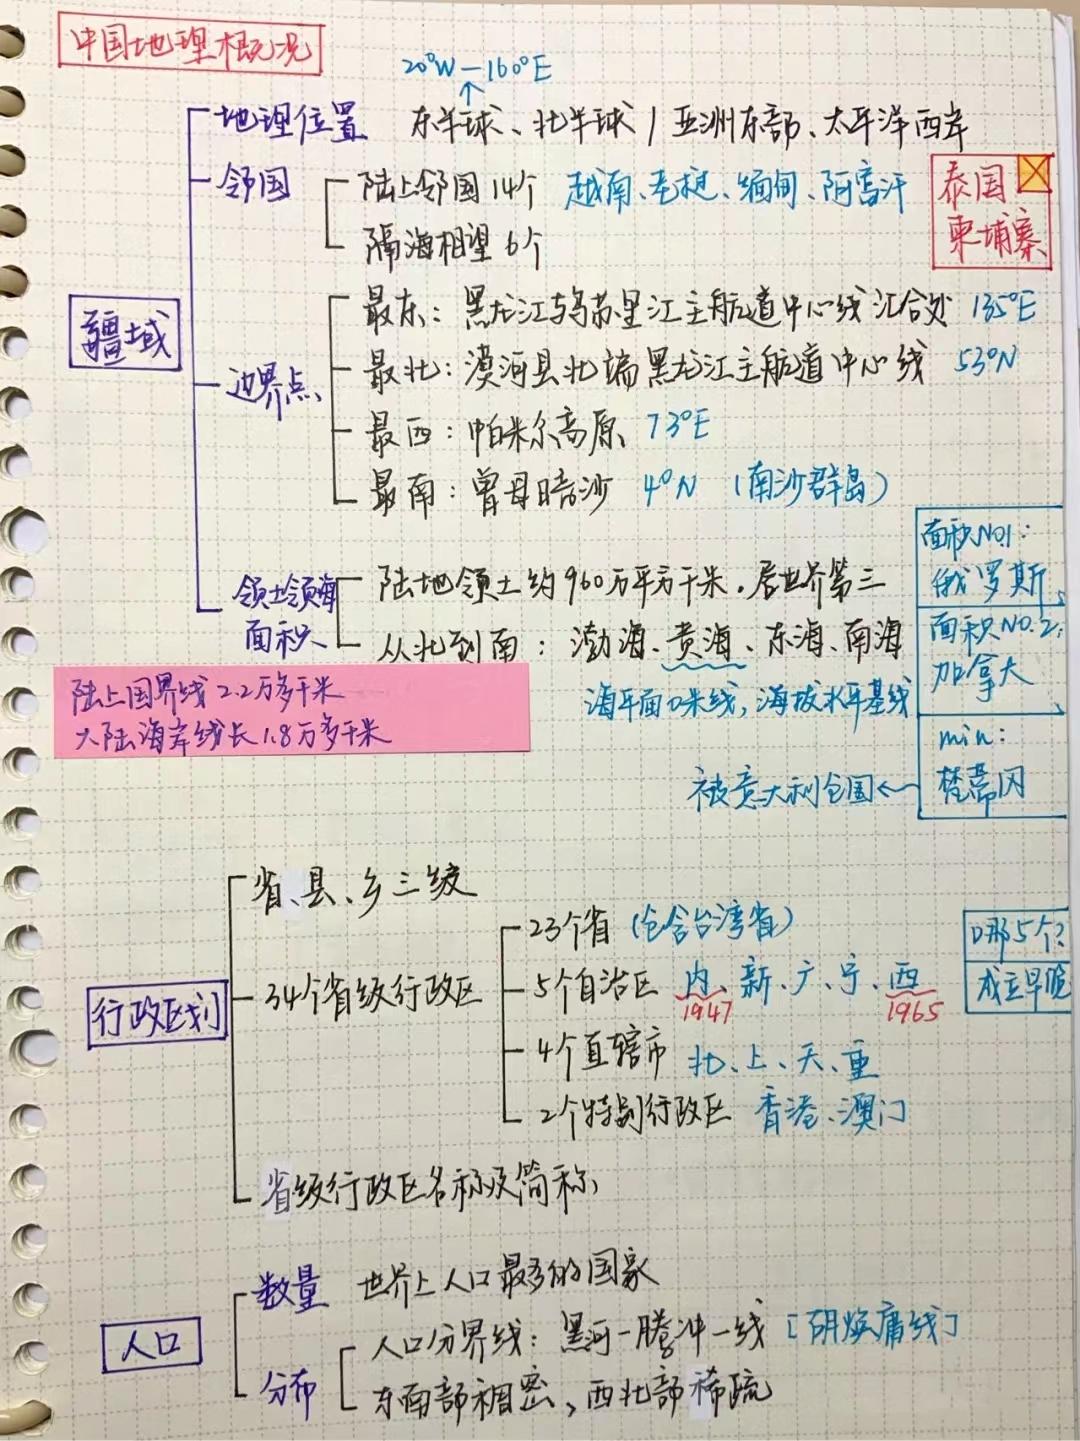 中国地理概况
20°W—160°E
地理位置 东半球、北半球/亚洲东部、太平洋西岸
邻国
陆上邻国14个 越南、老挝、缅甸、阿富汗
隔海相望6个
泰国
柬埔寨
疆域
边界点
最东：黑龙江与乌苏里江主航道中心线汇合处 135°E
最北：漠河县北端黑龙江主航道中心线 53°N
最西：帕米尔高原 73°E
最南：曾母暗沙 4°N （南沙群岛）
领土领海
面积
陆地领土约960万平方千米，居世界第三
从北到南：渤海、黄海、东海、南海
海平面0米线，海拔水平基线
面积NO.1：
俄罗斯
面积NO.2：
加拿大
min：
梵蒂冈
被意大利包围←
陆上国界线2.2万多千米
大陆海岸线长1.8万多千米
行政区划
省、县、乡三级
34个省级行政区
23个省（包含台湾省）
5个自治区 内、新、广、宁、西
1947 1965
4个直辖市 北、上、天、重
2个特别行政区 香港、澳门
哪5个？
成立早晚
省级行政区名称及简称
人口
数量 世界上人口最多的国家
分布
人口分界线：黑河—腾冲一线［胡焕庸线］
东南部稠密，西北部稀疏